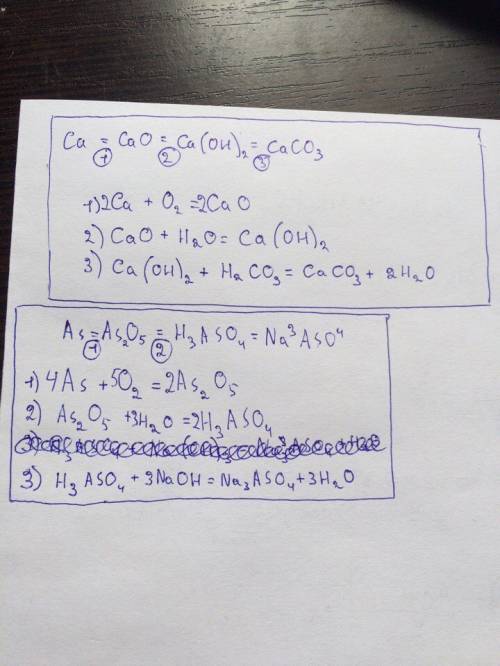 Ca = CaO = Ca(OH)₂ = CaCO₃
① ② ③
1) 2Ca + O₂ = 2CaO
2) CaO + H₂O = Ca(OH)₂
3) Ca(OH)₂ + H₂CO₃ = CaCO₃ + 2H₂O
As = As₂O₅ = H₃ASO₄ = Na³ASO⁴
① ②
1) 4As + 5O₂ = 2As₂O₅
2) As₂O₅ + 3H₂O = 2H₃ASO₄
3) H₃ASO₄ + 3NaOH = Na₃ASO₄ + 3H₂O